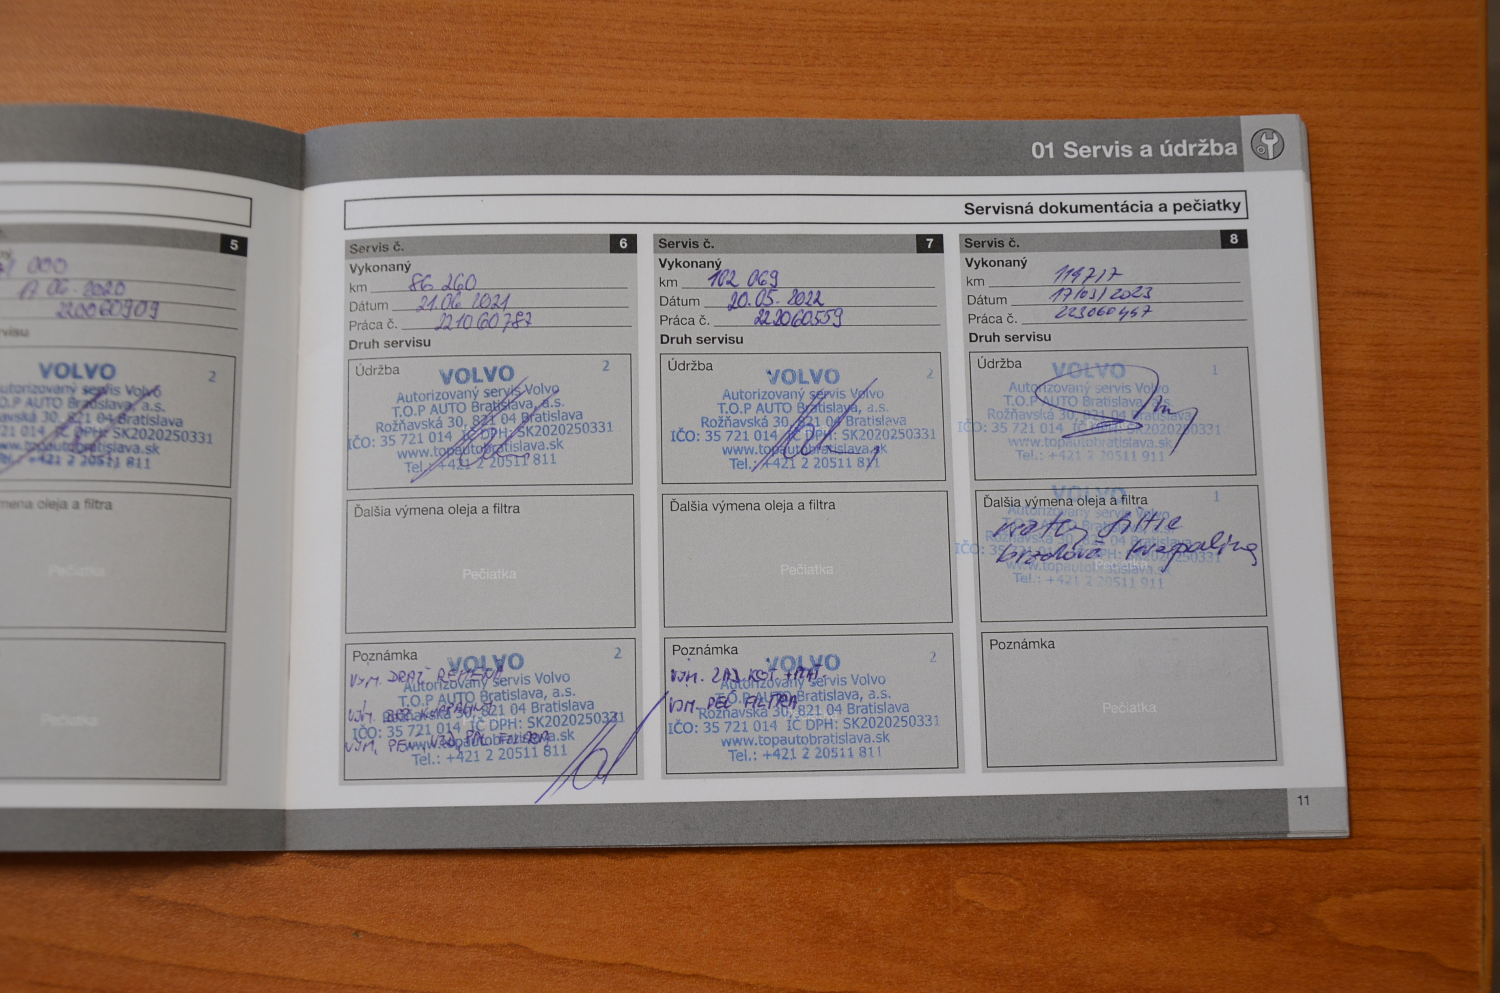 01 Servis a údržba
Servisná dokumentácia a pečiatky
5
000
17.06.2020
220060909
visu
VOLVO 2
utorizovaný servis Volvo
O.P AUTO Bratislava, a.s.
ňavská 30, 821 04 Bratislava
014 IČ DPH: SK2020250331
ww.topautobratislava.sk
+421 2 20511 811
mena oleja a filtra
Pečiatka
Pečiatka
Servis č. 6
Vykonaný
km 86 260
Dátum 21.06.2021
Práca č. 221060787
Druh servisu
Údržba
VOLVO 2
Autorizovaný servis Volvo
T.O.P AUTO Bratislava, a.s.
Rožňavská 30, 821 04 Bratislava
IČO: 35 721 014 IČ DPH: SK2020250331
www.topautobratislava.sk
Tel.: +421 2 20511 811
Ďalšia výmena oleja a filtra
Pečiatka
Poznámka
VOLVO 2
VÝM. DRÁŽ. REMEŇA
Autorizovaný servis Volvo
T.O.P AUTO Bratislava, a.s.
VÝM. BRZ. KVAPALINY
Rožňavská 30, 821 04 Bratislava
IČO: 35 721 014 IČ DPH: SK2020250331
VÝM. PEĽ.
www.topautobratislava.sk
Tel.: +421 2 20511 811
Servis č. 7
Vykonaný
km 102 069
Dátum 20.05.2022
Práca č. 222060559
Druh servisu
Údržba
VOLVO 2
Autorizovaný servis Volvo
T.O.P AUTO Bratislava, a.s.
Rožňavská 30, 821 04 Bratislava
IČO: 35 721 014 IČ DPH: SK2020250331
www.topautobratislava.sk
Tel.: +421 2 20511 811
Ďalšia výmena oleja a filtra
Pečiatka
Poznámka
VOLVO 2
VÝM. ZAD KOT +PLAT.
Autorizovaný servis Volvo
T.O.P AUTO Bratislava, a.s.
VÝM. PEĽ FILTRA
Rožňavská 30, 821 04 Bratislava
IČO: 35 721 014 IČ DPH: SK2020250331
www.topautobratislava.sk
Tel.: +421 2 20511 811
Servis č. 8
Vykonaný
km 119717
Dátum 17/03/2023
Práca č. 223060447
Druh servisu
Údržba
VOLVO 1
Autorizovaný servis Volvo
T.O.P AUTO Bratislava, a.s.
Rožňavská 30, 821 04 Bratislava
IČO: 35 721 014 IČ DPH: SK2020250331
www.topautobratislava.sk
Tel.: +421 2 20511 911
VOLVO 1
Ďalšia výmena oleja a filtra
Autorizovaný servis Volvo
všetky filtre
T.O.P AUTO Bratislava, a.s.
Rožňavská 30, 821 04 Bratislava
brzdová kvapalina
www.topautobratislava.sk
Pečiatka
Tel.: +421 2 20511 911
Poznámka
Pečiatka
11